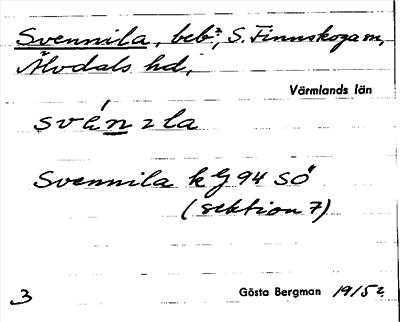 Svennila, beb?, S. Finnskoga sn,
Älvdals hd,
Värmlands län
svénıla
Svennila kG 94 SÖ
(sektion 7)
3
Gösta Bergman 1915